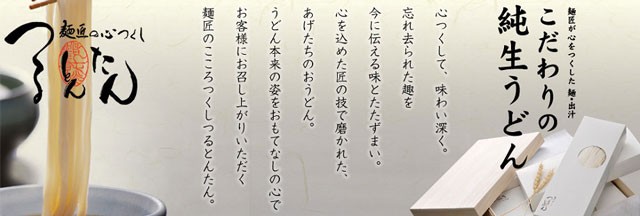 麺匠が心をつくした 麺・出汁
こだわりの
純生うどん
心つくして、味わい深く。
忘れ去られた趣を
今に伝える味とたたずまい。
心を込めた匠の技で磨かれた、
あげたちのおうどん。
うどん本来の姿をおもてなしの心で
お客様にお召し上がりいただく
麺匠のこころつくしつるとんたん。
麺匠の心つくし
つるとんたん